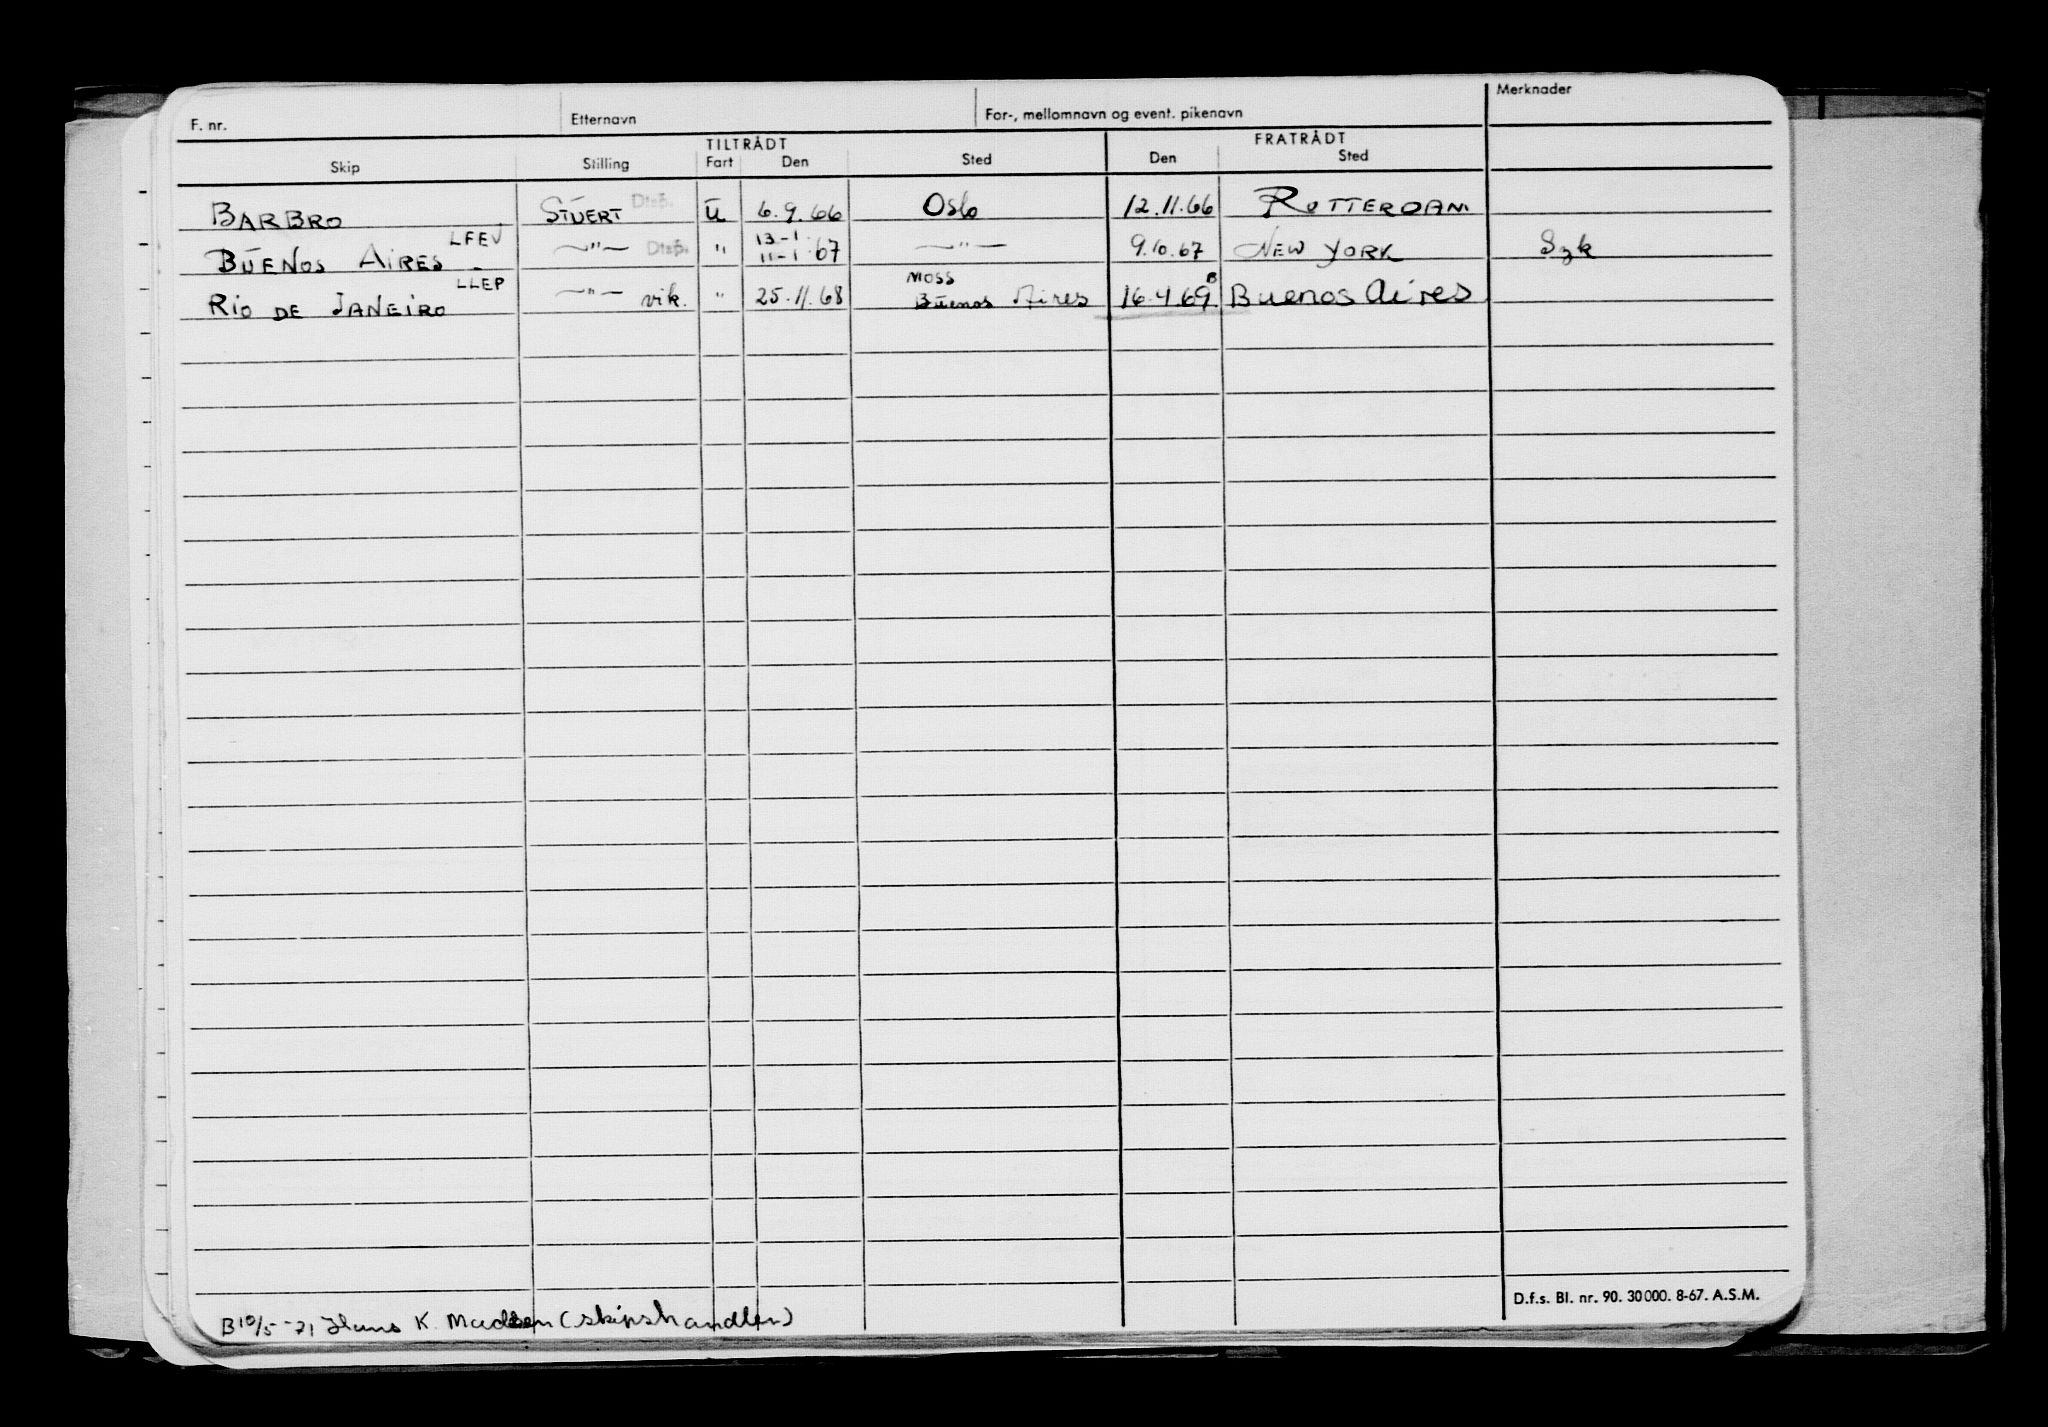 F. nr. Etternavn For-, mellomnavn og event. pikenavn Merknader
TILTRÅDT FRATRÅDT
Skip Stilling Fart Den Sted Den Sted
BARBRO STUERT Disp. U 6.9.66 Oslo 12.11.66 ROTTERDAM
LFEV 13-1
BUENOS AIRES —"— Disp. " 11-1.67 —"— 9.10.67 NEW YORK Szk
LLEP MOSS B
RIO DE JANEIRO —"— vik. " 25.11.68 Buenos Aires 16.4.69 Buenos Aires
D.f.s. Bl. nr. 90. 30 000. 8-67. A.S.M.
B10/5-71 Hans K. Madsen (skipshandler)